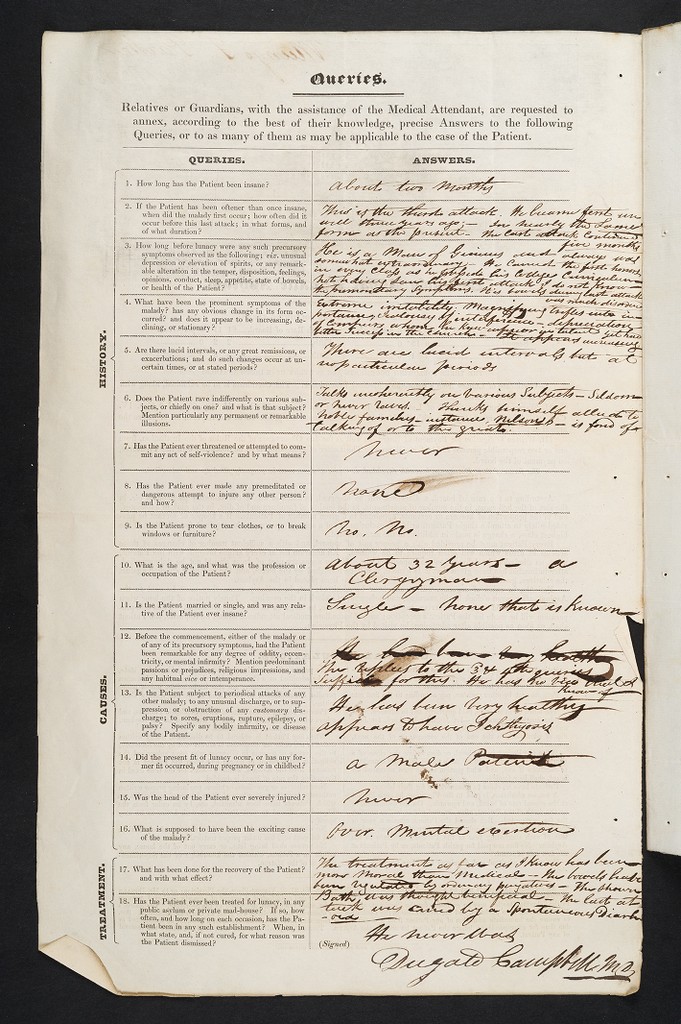 Queries.
Relatives or Guardians, with the assistance of the Medical Attendant, are requested to
annex, according to the best of their knowledge, precise Answers to the following
Queries, or to as many of them as may be applicable to the case of the Patient.
QUERIES.
ANSWERS.
HISTORY.
1. How long has the Patient been insane?
About two Months
2. If the Patient has been oftener than once insane,
when did the malady first occur; how often did it
occur before this last attack; in what forms, and
of what duration?
This is the third attack. He became first un
well three years ago; — In nearly the same
form as the present. The last attack continued
five months
3. How long before lunacy were any such precursory
symptoms observed as the following; viz. unusual
depression or elevation of spirits, or any remark-
able alteration in the temper, disposition, feelings,
opinions, conduct, sleep, appetite, state of bowels,
or health of the Patient?
He is a Man of Genius and always was
somewhat extraordinary. He carried the first honors
in every Class as he passed his College Curriculum
not having seen his first attack I do not know
the premonitory symptoms. His bowels during last attack
was much disordered
4. What have been the prominent symptoms of the
malady? has any obvious change in its form oc-
curred? and does it appear to be increasing, de-
clining, or stationary?
Extreme irritability, Magnifying trifles into im
portance, Jealousy of interference — depreciation
of compeers whom he knew inferior in talent yet had
better success in the Church — It appears increasing
5. Are there lucid intervals, or any great remissions, or
exacerbations; and do such changes occur at un-
certain times, or at stated periods?
There are lucid intervals but at
no particular periods
6. Does the Patient rave indifferently on various sub-
jects, or chiefly on one? and what is that subject?
Mention particularly any permanent or remarkable
illusions.
Talks incoherently on various Subjects — Seldom
or never raves. Thinks himself allied to
noble families — instance, Nelson's — is fond of
talking of or to the great.
7. Has the Patient ever threatened or attempted to com-
mit any act of self-violence? and by what means?
Never
8. Has the Patient ever made any premeditated or
dangerous attempt to injure any other person?
and how?
None
9. Is the Patient prone to tear clothes, or to break
windows or furniture?
No. No.
CAUSES.
10. What is the age, and what was the profession or
occupation of the Patient?
About 32 Years — a
Clergyman —
11. Is the Patient married or single, and was any rela-
tive of the Patient ever insane?
Single — None that is known
12. Before the commencement, either of the malady or
of any of its precursory symptoms, had the Patient
been remarkable for any degree of oddity, eccen-
tricity, or mental infirmity? Mention predominant
passions or prejudices, religious impressions, and
any habitual vice or intemperance.
He has been very health
The replies to the 3d 4th queries
suffice for this. He has no vice that I
know of
13. Is the Patient subject to periodical attacks of any
other malady; to any unusual discharge, or to sup-
pression or obstruction of any customary dis-
charge; to sores, eruptions, rupture, epilepsy, or
palsy? Specify any bodily infirmity, or disease
of the Patient.
He has been very healthy
appears to have Ichthyosis
14. Did the present fit of lunacy occur, or has any for-
mer fit occurred, during pregnancy or in childbed?
a Male Patient
15. Was the head of the Patient ever severely injured?
Never
16. What is supposed to have been the exciting cause
of the malady?
Over Mental exertion
TREATMENT.
17. What has been done for the recovery of the Patient?
and with what effect?
The treatment as far as I know has been
more Moral than Medical — The bowels have
been regulated by ordinary purgatives — The shower
Bath was thought beneficial — The last at
tack was cured by a Spontaneous Diarh
-oea
18. Has the Patient ever been treated for lunacy, in any
public asylum or private mad-house? If so, how
often, and how long on each occasion, has the Pa-
tient been in any such establishment? When, in
what state, and, if not cured, for what reason was
the Patient dismissed?
He never was
(Signed)
Dugald Campbell M.D